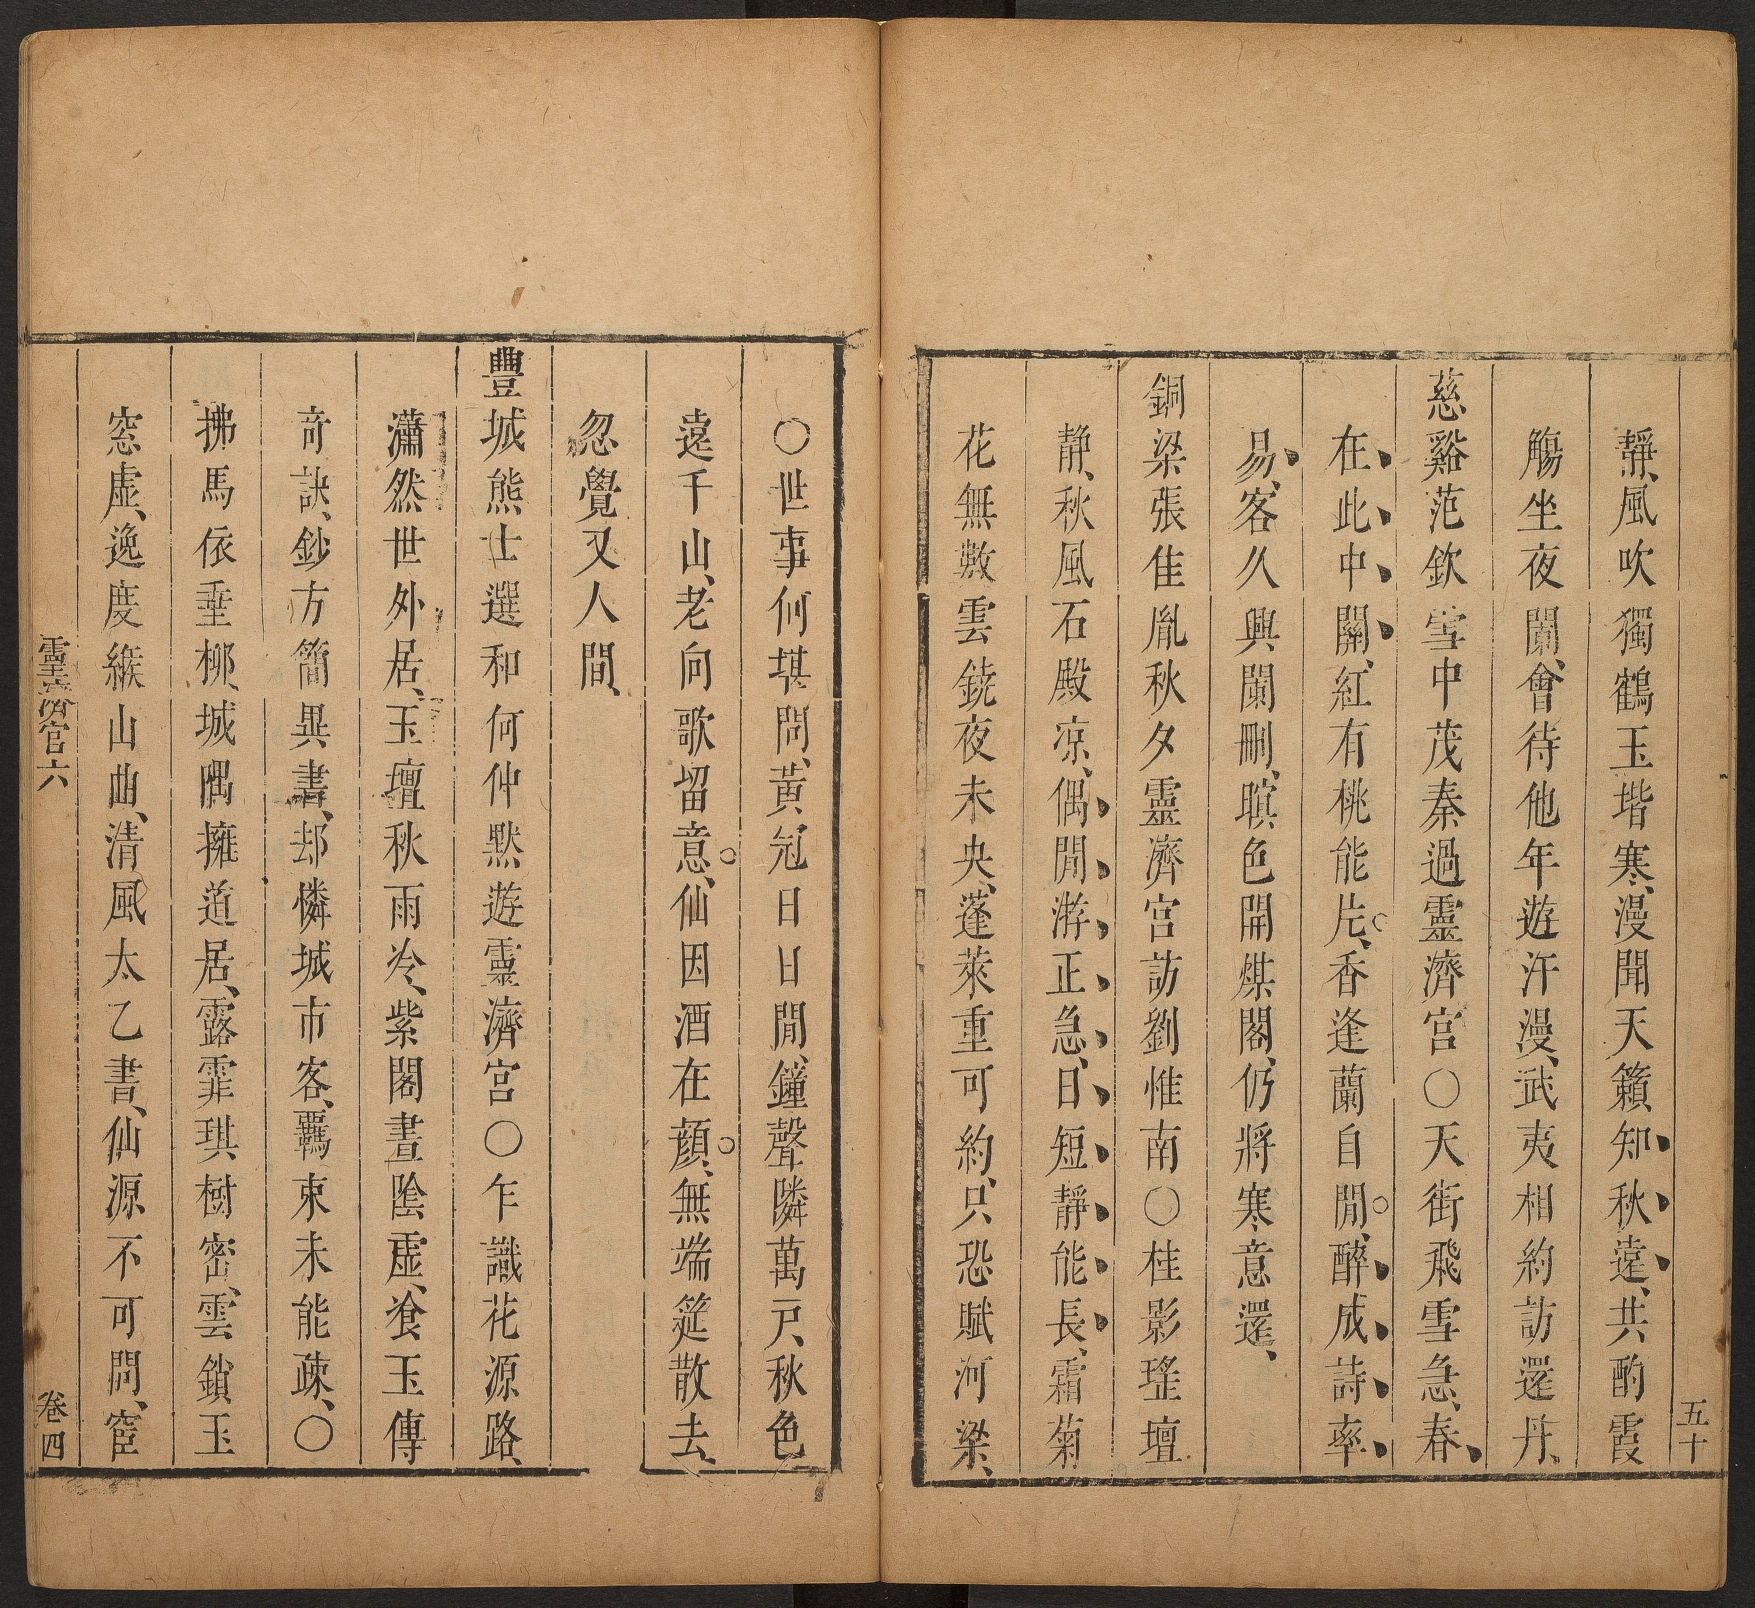 五十
靜、風吹獨鶴玉堦寒、漫聞天籟知秋遠、共酌霞
觴坐夜闌、會待他年遊汗漫、武夷相約訪還丹、
慈谿范欽雪中茂秦過靈濟宮○天街飛雪急、春
在此中關、紅有桃能片、香逢蘭自閒、醉成詩率
易、客久興闌刪、暝色開煤閣、仍將寒意還、
銅梁張佳胤秋夕靈濟宮訪劉惟南○桂影瑤壇
靜、秋風石殿凉、偶閒游正急、日短靜能長、霜菊
花無數雲鐃夜未央、蓬萊重可約、只恐賦河梁、
○世事何堪問、黃冠日日閒、鐘聲隣萬戸、秋色
遠千山、老向歌留意、仙因酒在顔、無端筵散去、
忽覺又人間、
豐城熊士選和何仲黙遊靈濟宮○乍識花源路、
瀟然世外居、玉壇秋雨冷、紫閣晝陰虛、飡玉傳
奇訣、鈔方簡異書、却憐城市客、羈束未能疎、○
拂馬依垂柳、城隅擁道居、露霏琪樹密、雲鎖玉
窓虛、逸度緱山曲、清風太乙書、仙源不可問、窅
靈濟宮六
卷四